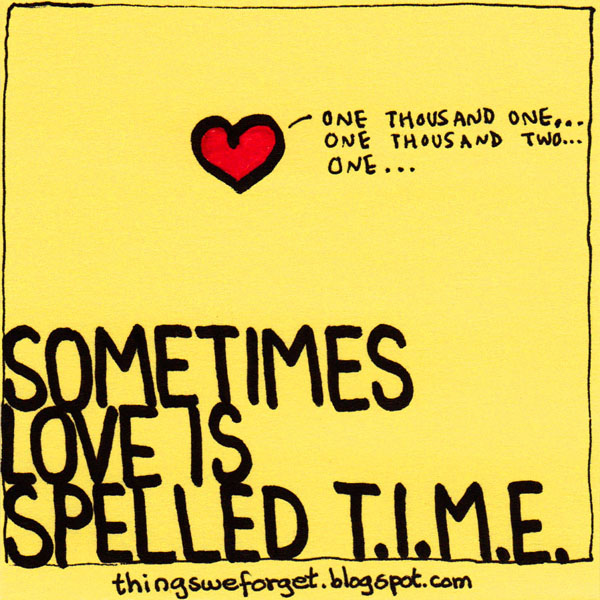 ONE THOUSAND ONE...
ONE THOUSAND TWO...
ONE...
SOMETIMES
LOVE IS
SPELLED T.I.M.E.
thingsweforget.blogspot.com